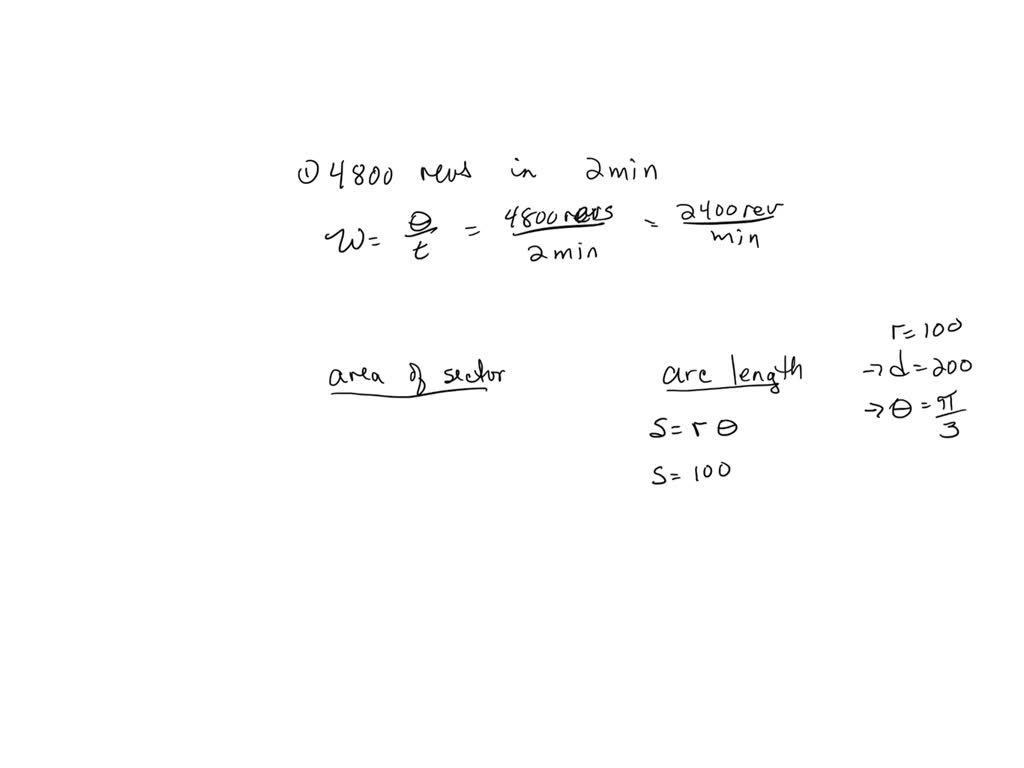 ① 4800 revs in 2min
ω = θ/t = 4800 revs/2min = 2400 rev/min
r=100
area of sector
arc length
→ d=200
→ θ = π/3
S= r θ
S= 100